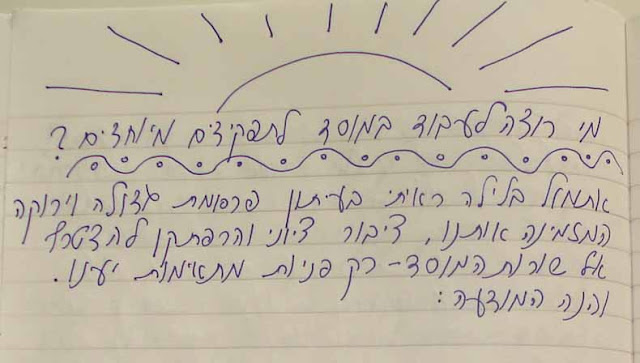 מי רוצה לעבוד במוסד לתפקידים מיוחדים?
אתמול בלילה ראיתי בעיתון פרסומת גדולה וירוקה
המזמינה אותנו, ציבור ציוני והרפתקן להצטרף
אל שורות המוסד - רק פניות מתאימות יענו.
והנה המודעה: